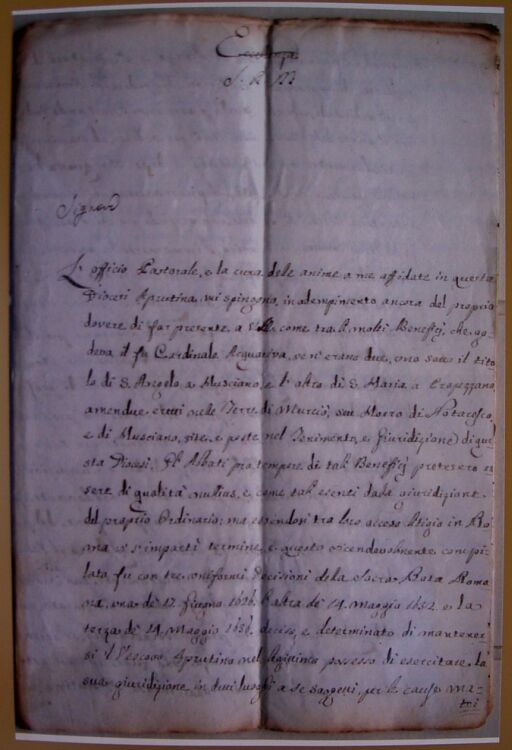 S. R. M.
Signore
L'officio Pastorale, e la cura delle anime a me affidate in questa
Diocesi Aprutina, mi spingono, in adempimento ancora del proprio
dovere di far presente a V.M. come tra li molti Beneficj, che go-
deva il fu Cardinale Acquaviva, ve n'erano due, uno sotto il tito-
lo di S. Angelo a Musciano, e l'altro di S. Maria a Propezzano
amendue eretti nelle Terre di Murrio, seu Morro di Notaresco,
e di Musciano, site, e poste nel Tenimento, e Giuridizione di que-
sta Diocesi. Gl'Abbati pro tempore di tali Beneficj pretesero es-
sere di qualità nullius, e come tali esenti dalla giuridizione
del proprio Ordinario; ma essendosi tra loro acceso litigio in Ro-
ma vi s'impartì termine, e questo vicendevolmente compi-
lato fu con tre uniformi decisioni della Sacra Rota Roma-
na, una de' 17. Giugno 1626. l'altra de' 14. Maggio 1652. e la
terza de' 19. Maggio 1656. deciso, e determinato di mantener-
si il Vescovo Aprutino nel legittimo possesso di esercitare la
sua giuridizione in detti luoghi a se soggetti, per le cause Ma-
tri